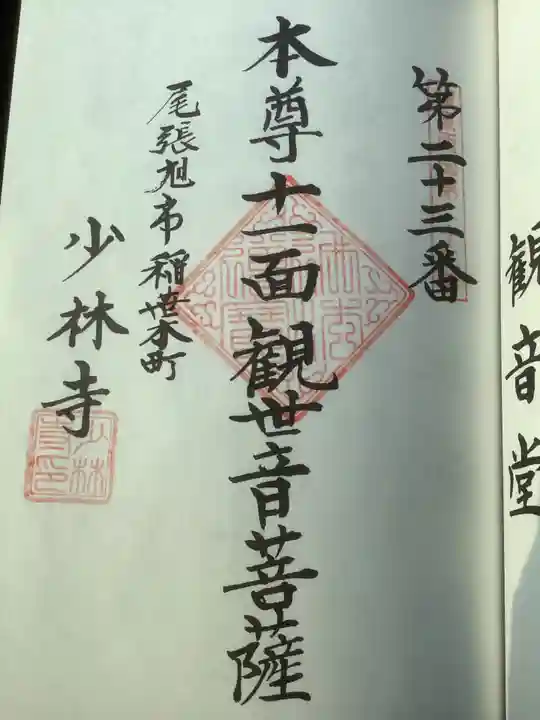 観音堂
第二十三番
本尊十一面観世音菩薩
尾張旭市稲葉町
少林寺